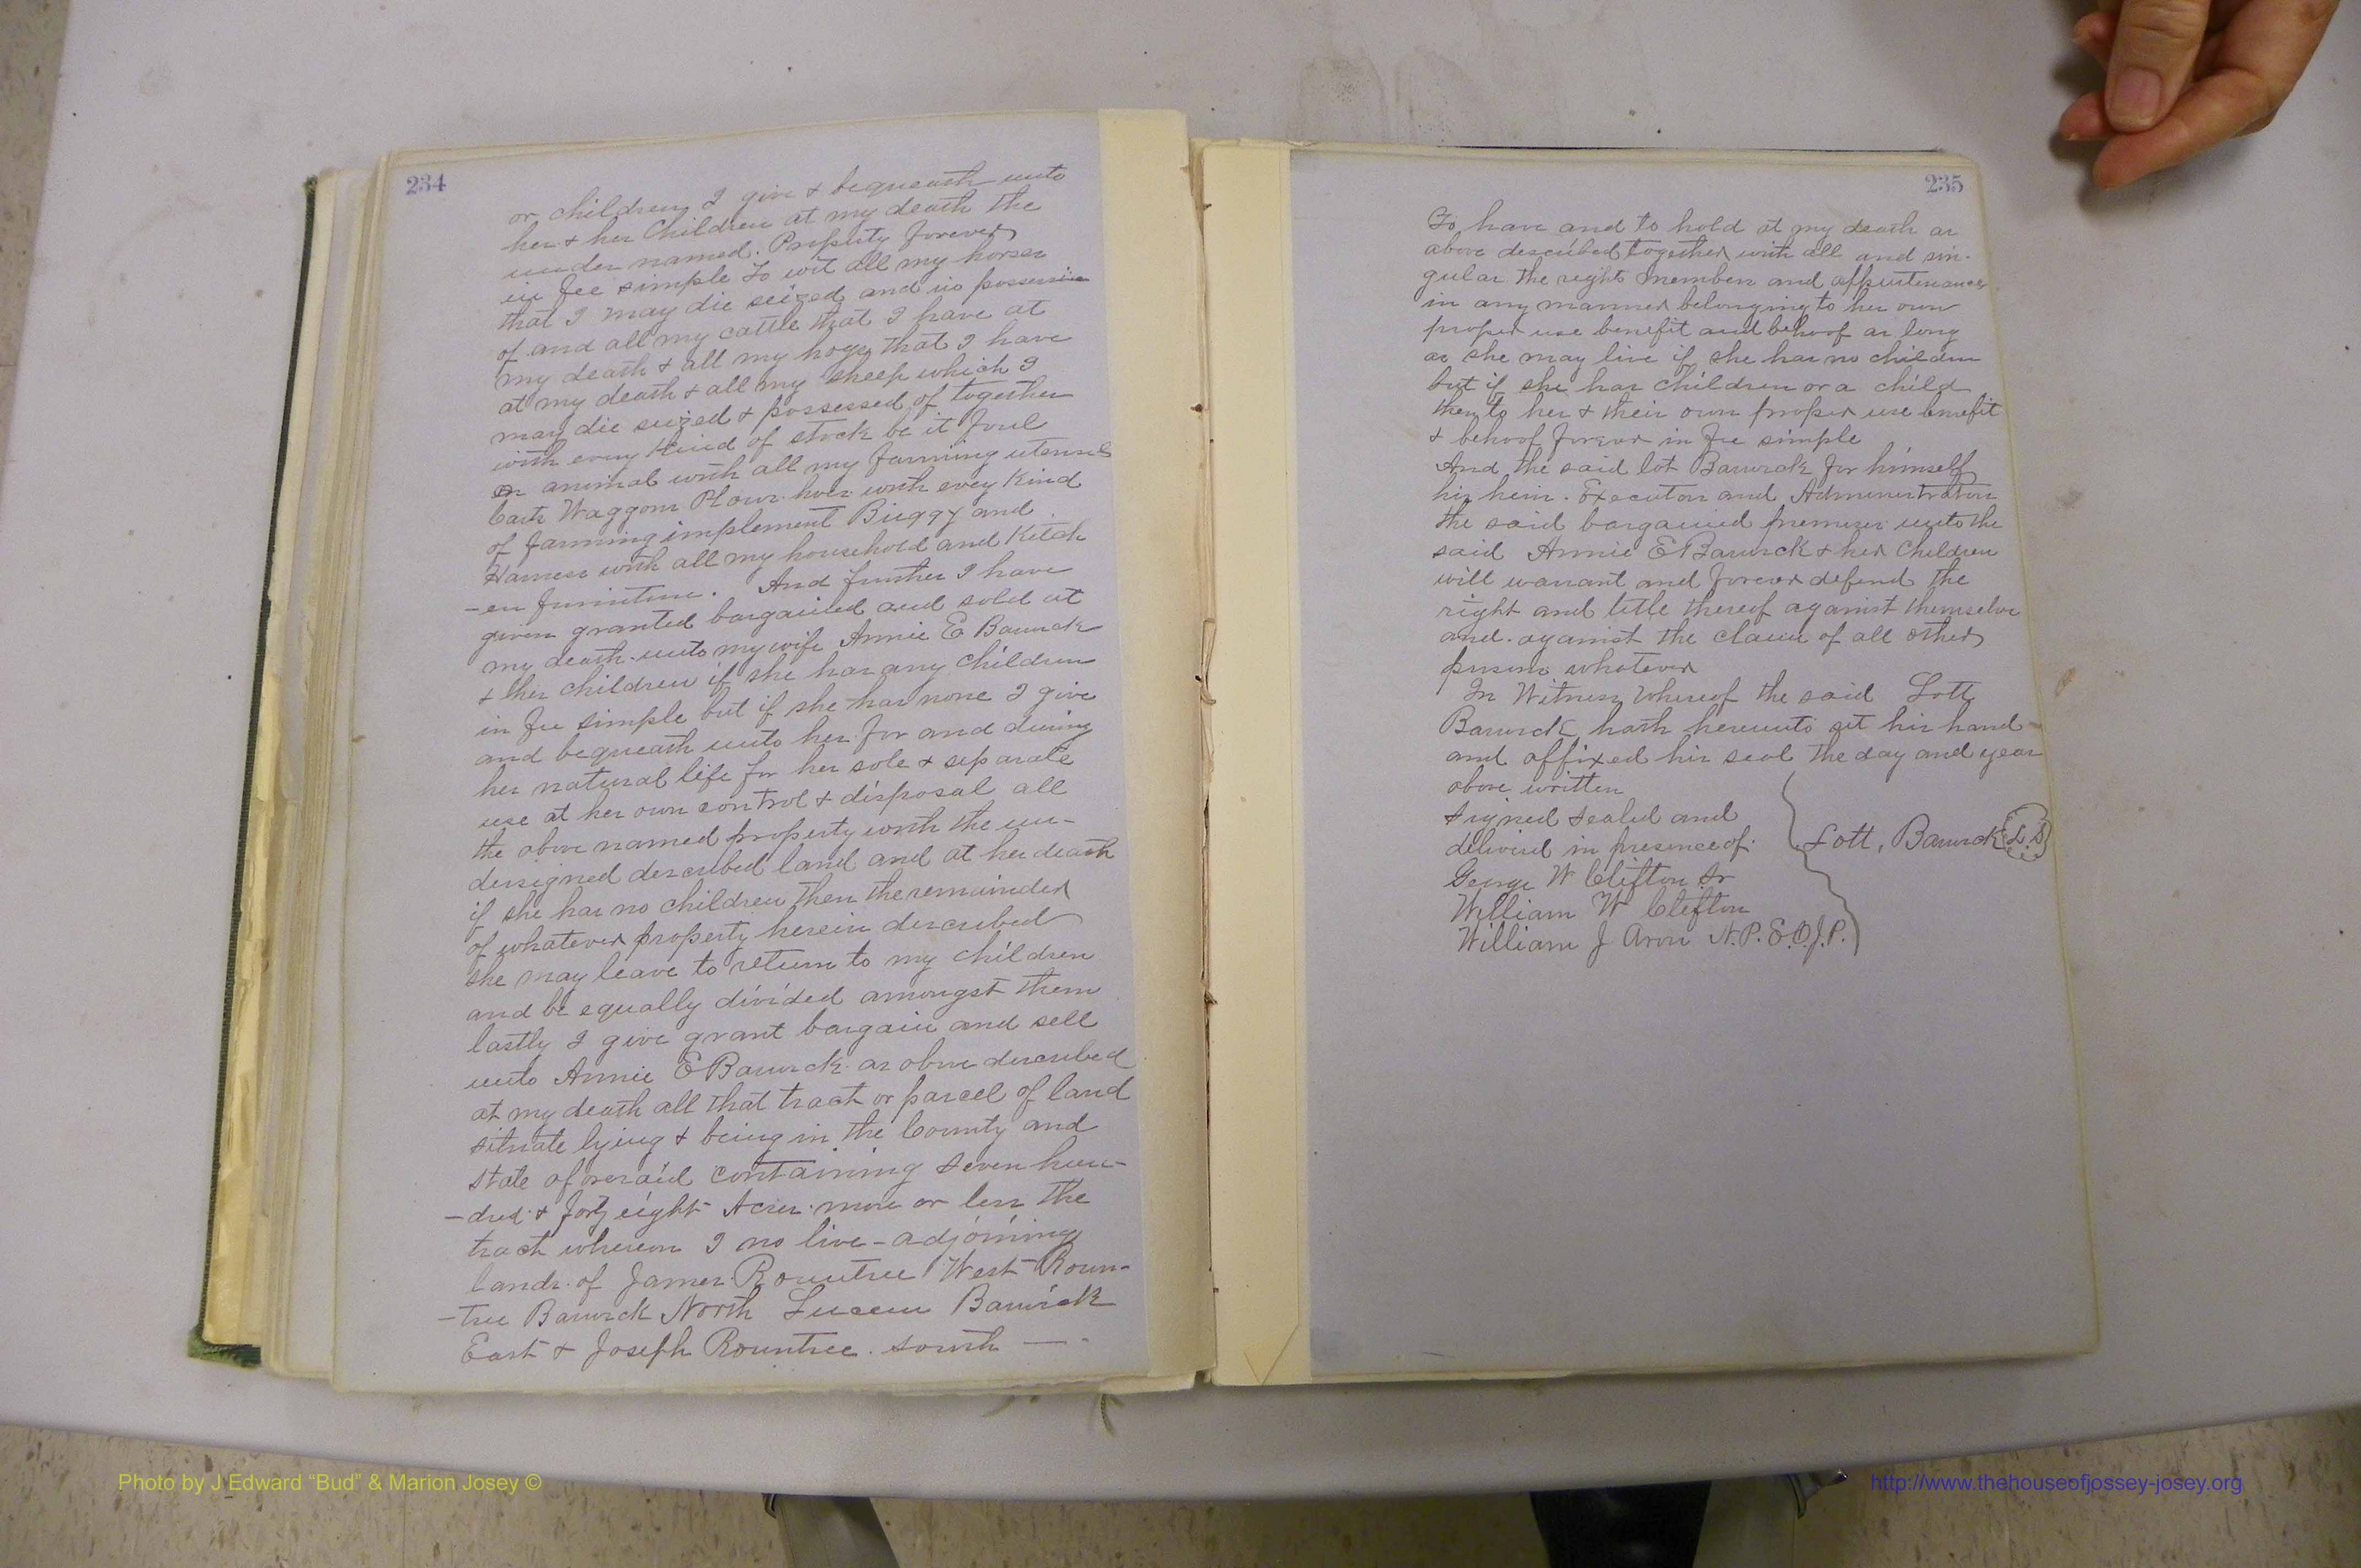 234
or children I give & bequeath unto
her & her Children at my death the
under named. Property forever
in fee simple To wit all my horses
that I may die seized and in possession
of and all my cattle that I have at
my death & all my hogs that I have
at my death & all my sheep which I
may die seized & possessed of together
with every Kind of stock be it foul
or animal with all my farming utensils
Carts Waggons Plows hoes with evey Kind
of farming implement Buggy and
Harness with all my household and Kitch
-en furniture. And further I have
given granted bargained and sold at
my death unto my wife Annie E Barwick
& her children if she has any children
in fee simple but if she has none I give
and bequeath unto her for and during
her natural life for her sole & separate
use at her own control & disposal all
the above named property with the un-
dersigned described land and at her death
if she has no children then the remainder
of whatever property herein described
she may leave to return to my children
and be equally divided amongst them
lastly I give grant bargain and sell
unto Annie E Barwick as above described
at my death all that tract or parcel of land
situate lying & being in the County and
state aforesaid containing seven hun-
-dred & forty eight Acres more or less the
tract whereon I no live - adjoining
lands of James Rountree West Roun-
-tree Barwick North Barwick
East & Joseph Rountree. south —
235
To have and to hold at my death as
above described together with all and sin-
gular the right members and appurtenances
in any manner belonging to her own
proper use benefit and behoof as long
as she may live if she has no children
but if she has children or a child
then to her & their own proper use benefit
& behoof forever in fee simple
And the said lot Barwick for himself
his heirs. Executors and Administrators
the said bargained premises unto the
said Annie E Barwick & her Children
will warrant and forever defend the
right and title thereof against themselve
and against the claim of all other
persons whatever
In Witness Whereof the said Lott
Barwick hath hereunto set his hand
and affixed his seal the day and year
above written
Signed Sealed and
delivered in presence of. Lott, Barwick (L.S)
George W Clifton Sr
William W Clifton
William J Aron N.P.&.O.J.P.
Photo by J Edward “Bud” & Marion Josey ©
http://www.thehouseofjossey-josey.org